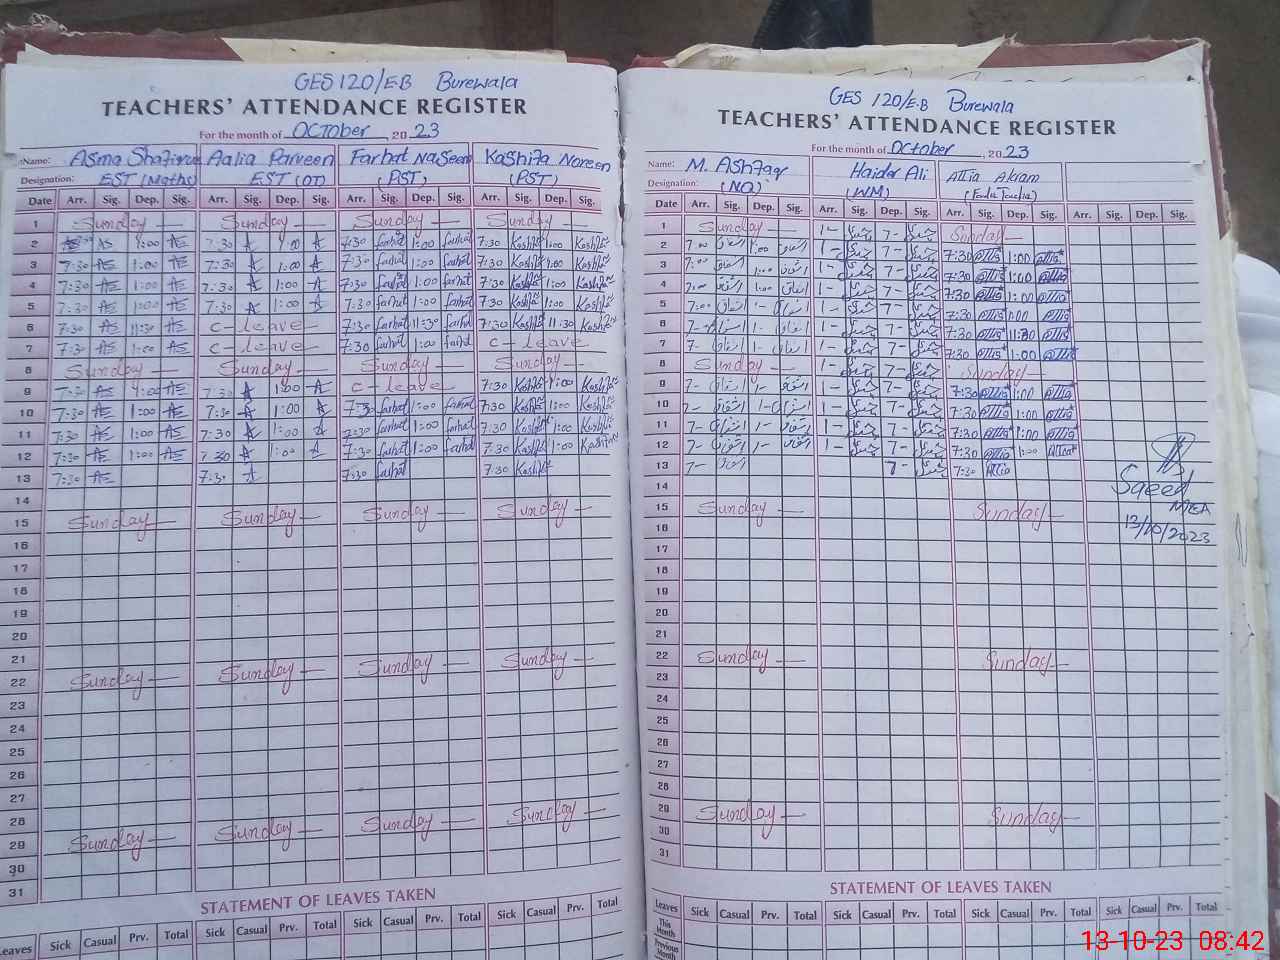 GES 120/EB Burewala
TEACHERS' ATTENDANCE REGISTER
For the month of October 2023
Name: Asma Aalia Parveen Farhat Naseem Kashifa Noreen
Designation: EST (Maths) EST (OT) (PST) (PST)
Date Arr. Sig. Dep. Sig. Arr. Sig. Dep. Sig. Arr. Sig. Dep. Sig. Arr. Sig. Dep. Sig.
1 Sunday Sunday Sunday Sunday
2 AE 1:00 AE 7:30 A 1:00 A 7:30 farhat 1:00 farhat 7:30 Kashifa 1:00 Kashifa
3 7:30 AE 1:00 AE 7:30 A 1:00 A 7:30 farhat 1:00 farhat 7:30 Kashifa 1:00 Kashifa
4 7:30 AE 1:00 AE 7:30 A 1:00 A 7:30 farhat 1:00 farhat 7:30 Kashifa 1:00 Kashifa
5 7:30 AE 1:00 AE 7:30 A 1:00 A 7:30 farhat 1:00 farhat 7:30 Kashifa 1:00 Kashifa
6 7:30 AE 11:30 AE C-leave 7:30 farhat 11:30 farhat 7:30 Kashifa 11:30 Kashifa
7 7:30 AE 1:00 AE C-leave 7:30 farhat 1:00 farhat C-leave
8 Sunday Sunday Sunday Sunday
9 7:30 AE 1:00 AE 7:30 A 1:00 A C-leave 7:30 Kashifa 1:00 Kashifa
10 7:30 AE 1:00 AE 7:30 A 1:00 A 7:30 farhat 1:00 farhat 7:30 Kashifa 1:00 Kashifa
11 7:30 AE 1:00 AE 7:30 A 1:00 A 7:30 farhat 1:00 farhat 7:30 Kashifa 1:00 Kashifa
12 7:30 AE 1:00 AE 7:30 A 1:00 A 7:30 farhat 1:00 farhat 7:30 Kashifa 1:00 Kashifa
13 7:30 AE 7:30 A 7:30 farhat 7:30 Kashifa
14
15 Sunday Sunday Sunday Sunday
16
17
18
19
20
21
22 Sunday Sunday Sunday Sunday
23
24
25
26
27
28
29 Sunday Sunday Sunday Sunday
30
31
STATEMENT OF LEAVES TAKEN
Leaves Sick Casual Prv. Total Sick Casual Prv. Total Sick Casual Prv. Total Sick Casual Prv. Total
GES 120/E.B Burewala
TEACHERS' ATTENDANCE REGISTER
For the month of October, 2023
Name: M. Ashfaq Haider Ali Attia Akram
Designation: (NQ) (WM)
Date Arr. Sig. Dep. Sig. Arr. Sig. Dep. Sig. Arr. Sig. Dep. Sig. Arr. Sig. Dep. Sig.
1 Sunday 1- 7- Sunday
2 7:00 اشفاق 1:00 اشفاق 1- 7- 7:30 Attia 1:00 Attia
3 7:00 اشفاق 1:00 اشفاق 1- 7- 7:30 Attia 1:00 Attia
4 7:00 اشفاق 1- اشفاق 1- 7- 7:30 Attia 1:00 Attia
5 7:00 اشفاق 1- اشفاق 1- 7- 7:30 Attia 1:00 Attia
6 7- اشفاق 1- اشفاق 1- 7- 7:30 Attia 11:30 Attia
7 7- اشفاق 1- اشفاق 1- 7- 7:30 Attia 1:00 Attia
8 Sunday 1- 7- Sunday
9 7- اشفاق 1- اشفاق 1- 7- 7:30 Attia 1:00 Attia
10 7- اشفاق 1- اشفاق 1- 7- 7:30 Attia 1:00 Attia
11 7- اشفاق 1- اشفاق 1- 7- 7:30 Attia 1:00 Attia
12 7- اشفاق 1- اشفاق 1- 7- 7:30 Attia 1:00 Attia
13 7- اشفاق 7- 7:30 Attia
14 Saeed
15 Sunday Sunday MEA
16 13/10/2023
17
18
19
20
21
22 Sunday Sunday
23
24
25
26
27
29 Sunday Sunday
30
31
STATEMENT OF LEAVES TAKEN
Leaves Sick Casual Prv. Total Sick Casual Prv. Total Sick Casual Prv. Total Sick Casual Prv. Total
This Month
Previous Month
13-10-23 08:42